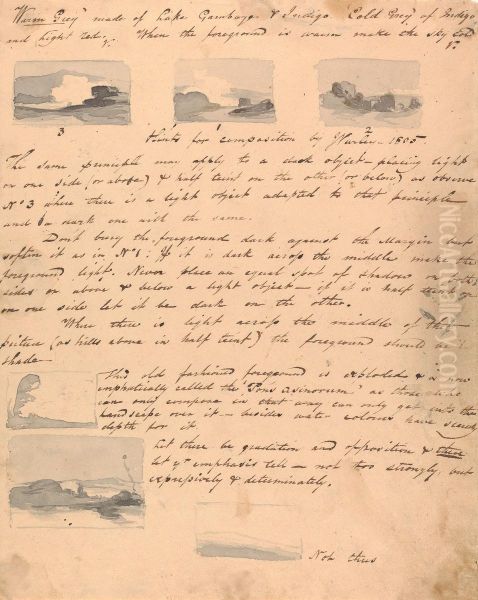 "Warm Grey" made of Lake Gamboge & Indigo "Cold Grey" of Indigo
and Light Red. When the foreground is warm make the sky cold
3
1
2
Hints for composition by J Varley - 1805.
The same principle may apply to a dark object - placing light
on one side (or above) & half teint on the other (or below) as observe
No 3 where there is a light object adapted to that principle
and a dark one with the same.
Don't bury the foreground dark against the Margin but
soften it as in No 1: If it is dark across the middle make the
foreground light. Never place an equal spot of shadow on both
sides or above & below a light object - if it is half teint
on one side let it be dark on the other.
When there is light across the middle of the
picture (as hills above in half teint) the foreground should be in
shade
This old fashioned foreground is exploded & is now
emphatically called the "Pons asinorum" as those who
can only compose in that way can only get into the
landscape over it - besides water colours have scarcely
depth for it.
Let there be gradation and opposition & there
let ye emphasis tell - not too strongly, but
expressively & determinately.
Not thus